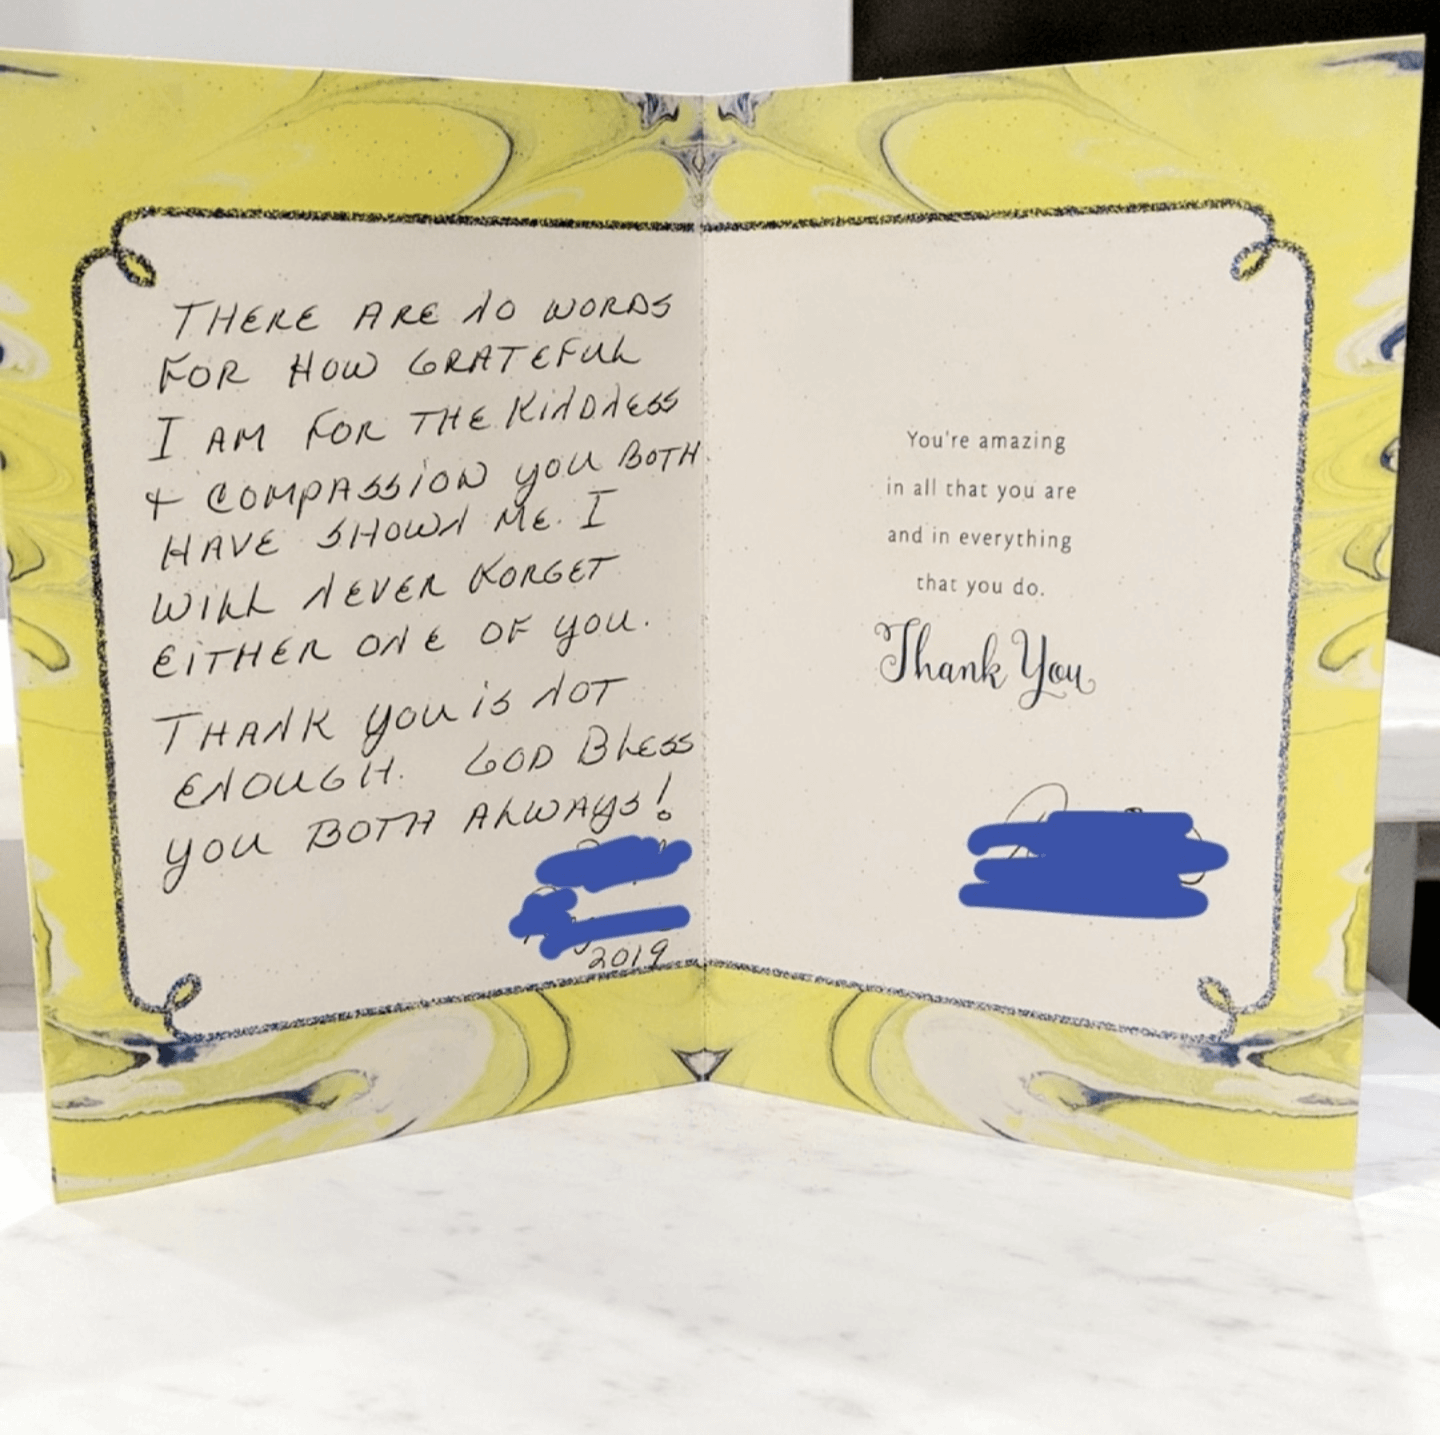 THERE ARE NO WORDS
FOR HOW GRATEFUL
I AM FOR THE KINDNESS
& COMPASSION YOU BOTH
HAVE SHOWN ME. I
WILL NEVER FORGET
EITHER ONE OF YOU.
THANK YOU IS NOT
ENOUGH. GOD BLESS
YOU BOTH ALWAYS!
2019
You're amazing
in all that you are
and in everything
that you do.
Thank You